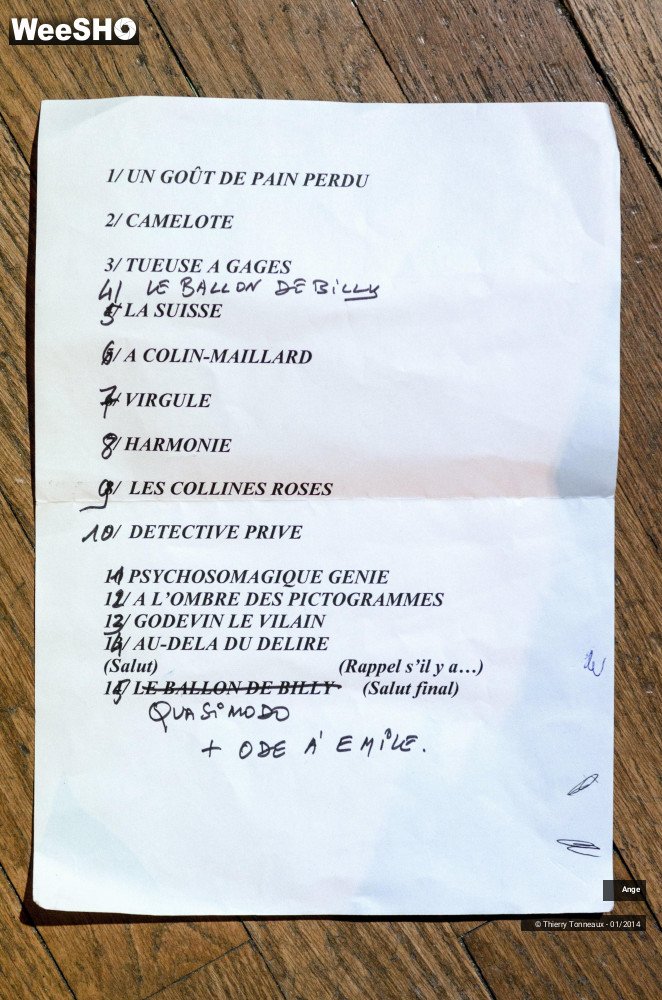 WeeSHO
1/ UN GOÛT DE PAIN PERDU
2/ CAMELOTE
3/ TUEUSE A GAGES
4/ LE BALLON DE BILLY
5/ LA SUISSE
6/ A COLIN-MAILLARD
7/ VIRGULE
8/ HARMONIE
9/ LES COLLINES ROSES
10/ DETECTIVE PRIVE
11/ PSYCHOSOMAGIQUE GENIE
12/ A L’OMBRE DES PICTOGRAMMES
13/ GODEVIN LE VILAIN
14/ AU-DELA DU DELIRE
(Salut) (Rappel s’il y a…)
15/ LE BALLON DE BILLY (Salut final)
QUASIMODO
+ ODE A' EMILE.
Ange
© Thierry Tonneaux - 01/2014